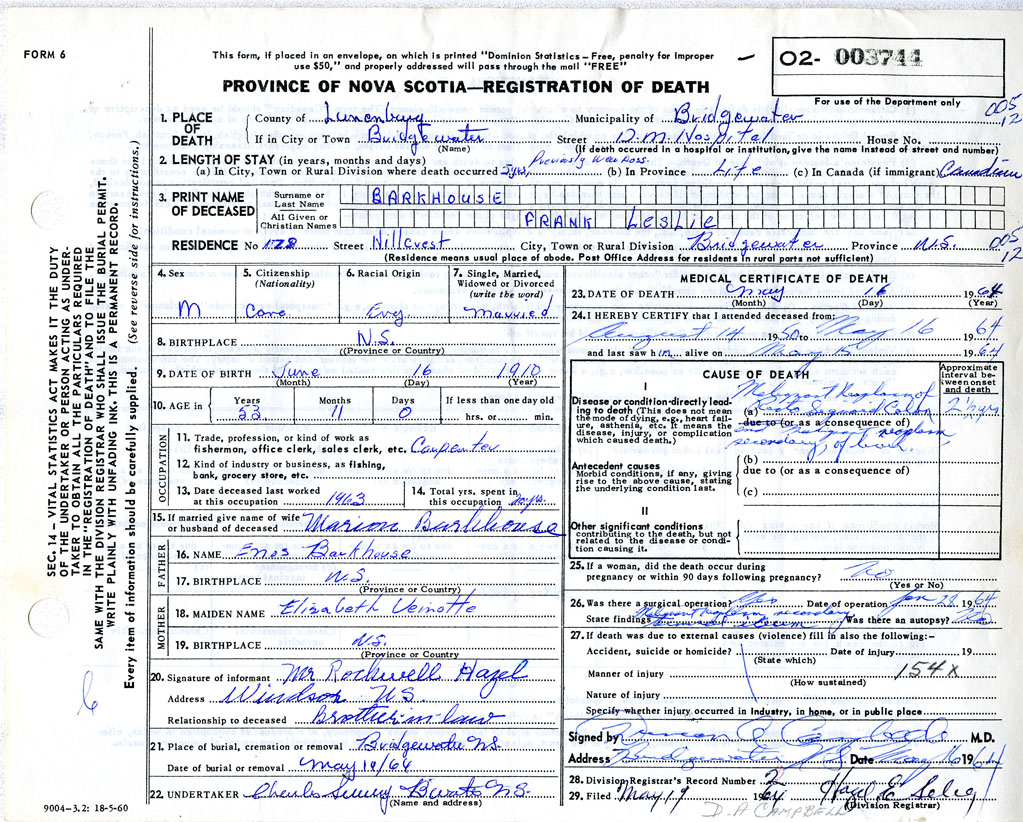 FORM 6
This form, if placed in an envelope, on which is printed "Dominion Statistics – Free, penalty for improper
use $50," and properly addressed will pass through the mail "FREE"
O2- 003744
PROVINCE OF NOVA SCOTIA—REGISTRATION OF DEATH
For use of the Department only
005
12
1. PLACE OF DEATH
County of Lunenburg Municipality of Bridgewater
If in City or Town Bridgewater Street D.M. Hospital House No.
(Name) (If death occurred in hospital or institution, give the name instead of street and number)
2. LENGTH OF STAY (in years, months and days) Previously
(a) In City, Town or Rural Division where death occurred 5 yrs. (b) In Province Life (c) In Canada (if immigrant) Canadian
3. PRINT NAME OF DECEASED
Surname or Last Name BARKHOUSE
All Given or Christian Names FRANK LESLIE
RESIDENCE No 178 Street Hillcrest City, Town or Rural Division Bridgewater Province N.S.
005
12
(Residence means usual place of abode. Post Office Address for residents in rural parts not sufficient)
4. Sex
M
5. Citizenship
(Nationality)
6. Racial Origin
Eng
7. Single, Married, Widowed or Divorced
(write the word)
Married
8. BIRTHPLACE N.S.
(Province or Country)
9. DATE OF BIRTH June 16 1910
(Month) (Day) (Year)
10. AGE in
Years 53 Months 11 Days 0
If less than one day old
hrs. or min.
OCCUPATION
11. Trade, profession, or kind of work as
fisherman, office clerk, sales clerk, etc. Carpenter
12. Kind of industry or business, as fishing,
bank, grocery store, etc.
13. Date deceased last worked
at this occupation 1963
14. Total yrs. spent in
this occupation yrs.
15. If married give name of wife
or husband of deceased Marion Barkhouse
FATHER
16. NAME Enos Barkhouse
17. BIRTHPLACE N.S.
(Province or Country)
MOTHER
18. MAIDEN NAME Elizabeth Veinotte
19. BIRTHPLACE N.S.
(Province or Country
20. Signature of informant Mr Rockwell Hazel
Address Windsor N.S.
Relationship to deceased Brother-in-law
21. Place of burial, cremation or removal Bridgewater N.S.
Date of burial or removal May 19/64
22. UNDERTAKER Charles B'water N.S.
(Name and address)
9004–3.2: 18-5-60
SEC. 14 – VITAL STATISTICS ACT MAKES IT THE DUTY
OF THE UNDERTAKER OR PERSON ACTING AS UNDER-
TAKER TO OBTAIN ALL THE PARTICULARS REQUIRED
IN THE "REGISTRATION OF DEATH" AND TO FILE THE
SAME WITH THE DIVISION REGISTRAR WHO SHALL ISSUE THE BURIAL PERMIT.
WRITE PLAINLY WITH UNFADING INK. THIS IS A PERMANENT RECORD.
Every item of information should be carefully supplied. (See reverse side for instructions.)
6
MEDICAL CERTIFICATE OF DEATH
23. DATE OF DEATH May 16 1964
(Month) (Day) (Year)
24. I HEREBY CERTIFY that I attended deceased from:
August 14 1950 to May 16 1964
and last saw him alive on May 15 1964
CAUSE OF DEATH
Approximate interval between onset and death
I
Disease or condition directly lead-
ing to death (This does not mean
the mode of dying, e.g., heart fail-
ure, asthenia, etc. It means the
disease, injury, or complication
which caused death.)
(a) Malignant Neoplasm of
Recto Sigmoid Colon
2½ yrs
due to (or as a consequence of)
and Malignant neoplasm
secondary, of
(b)
due to (or as a consequence of)
(c)
Antecedent causes
Morbid conditions, if any, giving
rise to the above cause, stating
the underlying condition last.
II
Other significant conditions
contributing to the death, but not
related to the disease or condi-
tion causing it.
25. If a woman, did the death occur during
pregnancy or within 90 days following pregnancy? No
(Yes or No)
26. Was there a surgical operation? Yes Date of operation Jan 22 1964
State findings Malignant neoplasm secondary
Was there an autopsy? No
27. If death was due to external causes (violence) fill in also the following:–
Accident, suicide or homicide? Date of injury 19
(State which)
Manner of injury 154X
(How sustained)
Nature of injury
Specify whether injury occurred in industry, in home, or in public place
Signed by M.D.
Address Bridgewater N.S. Date May 16 1964
28. Division Registrar's Record Number
29. Filed May 19 1964 Hazel E
(Division Registrar)
D. A CAMPBELL